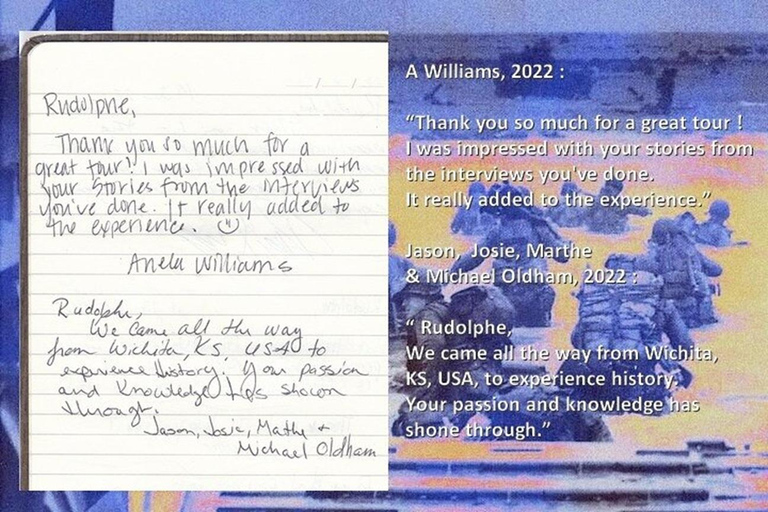 Rudolphe,
Thank you so much for a
great tour! I was impressed with
your stories from the interviews
you've done. It really added to
the experience. ☺
Anela Williams
Rudolphe,
We came all the way
from Wichita, KS, USA to
experience history. Your passion
and knowledge has shown
through.
Jason, Josie, Mathe +
Michael Oldham
A Williams, 2022 :
“Thank you so much for a great tour !
I was impressed with your stories from
the interviews you've done.
It really added to the experience.”
Jason, Josie, Marthe
& Michael Oldham, 2022 :
“ Rudolphe,
We came all the way from Wichita,
KS, USA, to experience history.
Your passion and knowledge has
shone through.”